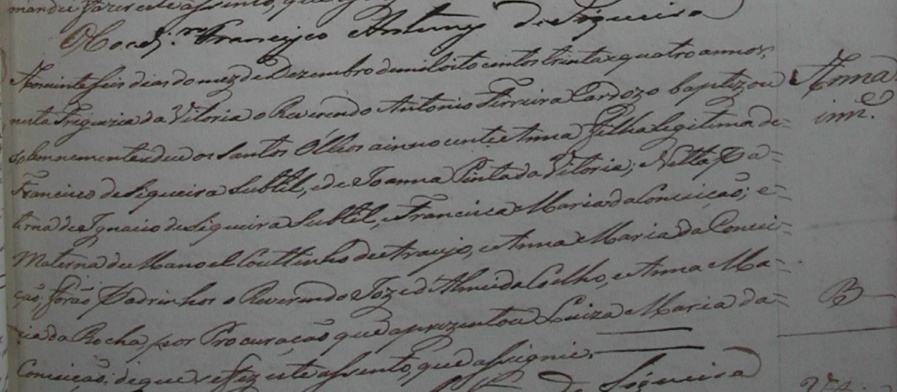 mandei fazer este assento, que
O Coadj.or Francisco Antunes de Siqueira
Aos vinte seis dias do mez de Dezembro de mil oito centos trinta e quatro annos,
nesta Freguezia da Vitoria o Reverendo Antonio Ferreira Cardozo baptizou
solemnemente e deu os Santos Olhos a innocente Anna Filha legitima de
Francisco de Siqueira Subtil, e de Joanna Pinta da Vitoria; Netta Pa=
terna de Ignacio de Siqueira Subtil, e Francisca Maria da Conceição; e=
Materna de Manoel Couttinho de Araujo, e Anna Maria da Concei=
ção, forão Padrinhos o Reverendo Joze d'Almeida Coelho, e Anna Ma=
ria da Rocha, por Procuração que aprezentou Luiza Maria da=
Conceição; de que se fez este assento, que assignei.
de Siqueira
Anna
inn.e
B